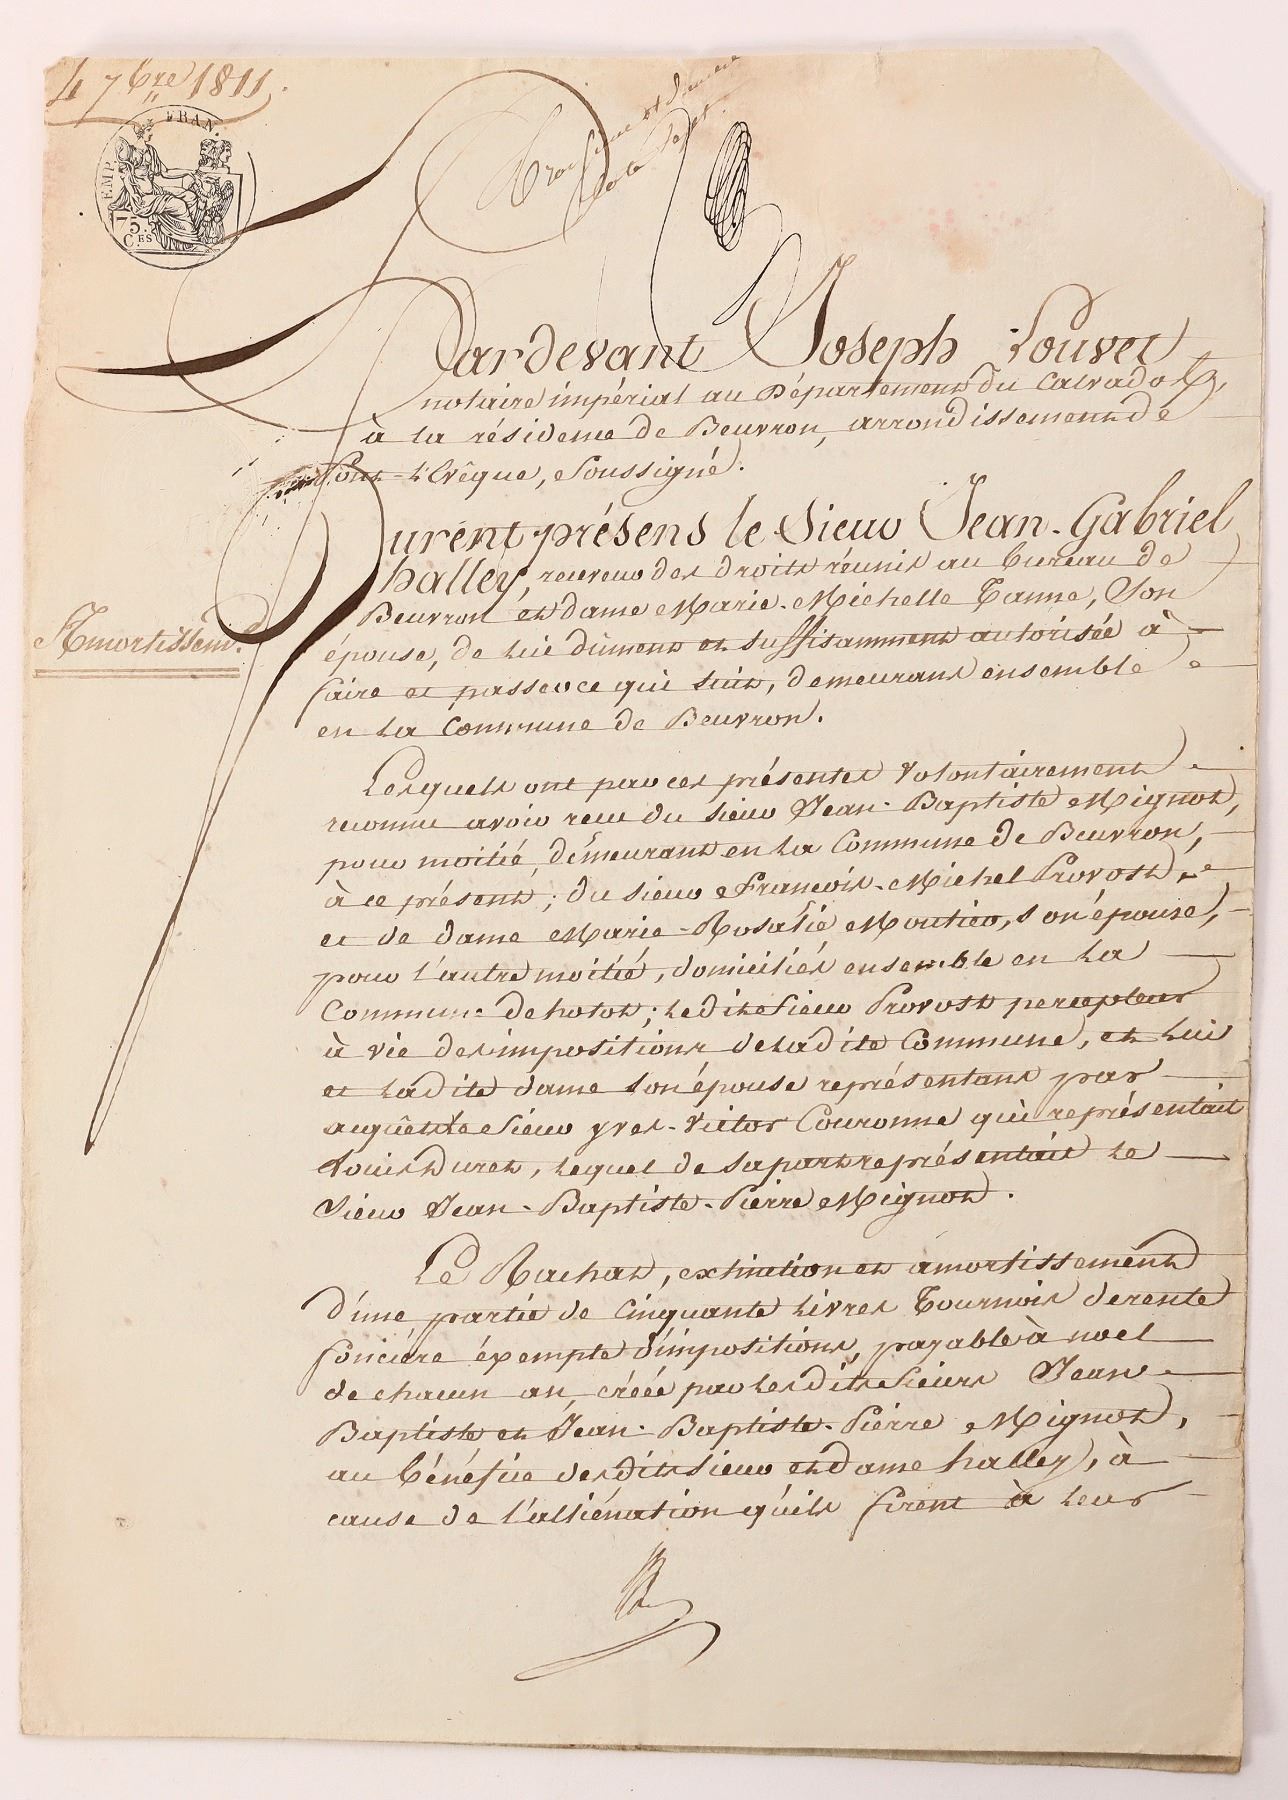 4 7bre 1811.
EMP. FRAN.
75. Ces
Pardevant Joseph Louvet
notaire impérial au Département du Calvados,
à la résidence de Beuvron, arrondissement de
Pont-l'Evêque, soussigné.
Furent présens le Sieur Jean-Gabriel
halley, receveur des droits réunis au bureau de
Beuvron et dame Marie-Michelle Tanne, Son
Amortissemt.
épouse, de lui dûment et suffisamment autorisée à
faire et passer ce qui suit, demeurans ensemble
en la Commune de Beuvron.
Lesquels ont par ces présentes volontairement
reconnu avoir reçu du sieur Jean-Baptiste Mignot,
pour moitié, demeurant en la Commune de Beuvron,
à ce présent; du sieur François-Michel Provost
et de dame Marie-Rosalie Moutier, son épouse,
pour l'autre moitié, domiciliés ensemble en la
Commune de hotot; ledit Sieur Provost percepteur
à vie des impositions de ladite Commune, et lui
et ladite dame son épouse représentans par
acquêt le Sieur yves-Victor Couronne qui représentait
Louis Duret, lequel de sa part représentait le
Sieur Jean-Baptiste-Pierre Mignot.
Le Rachat, extinction et amortissement
d'une partie de cinquante livres Tournois de rente
foncière éxempte d'impositions, payable à noel
de chacun an, créée par lesdits Sieurs Jean
Baptiste et Jean-Baptiste-Pierre Mignot,
au bénéfice desdits sieur et dame halley, à
cause de l'aliénation qu'ils firent à leur